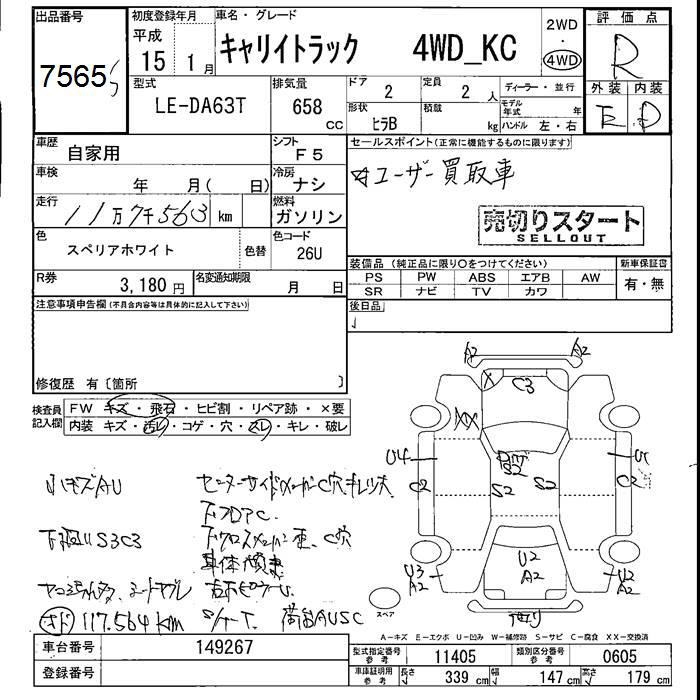 出品番号
7565
初度登録年月
平成
15 1月
車名・グレード
キャリイトラック 4WD_KC
2WD
4WD
評価点
R
外装 内装
E D
型式
LE-DA63T
排気量
658 CC
ドア
2
定員
2 人
形状
ヒラB
積載
kg
ディーラー・並行
モデル年式 年
ハンドル 左・右
車歴
自家用
シフト
F5
車検
年 月( 日)
冷房
ナシ
走行
11万7千563 km
燃料
ガソリン
色
スペリアホワイト
色替
色コード
26U
R券
3,180円
名変通知期限
月 日
セールスポイント(正常に機能するものに限ります)
☆ユーザー買取車
売切りスタート
SELLOUT
装備品(純正品に限り○をつけてください)
PS PW ABS エアB AW
SR ナビ TV カワ
新車保証書
有・無
後日品
注意事項申告欄(不具合内容等は具体的に記入して下さい)
修復歴 有〔箇所 〕
検査員記入欄
FW キズ・飛石・ヒビ割・リペア跡・×要
内装 キズ・汚レ・コゲ・穴・スレ・キレ・破レ
小キズAU
下廻りS3C3
117.564km
下フロアC.
A2 A2
C3
U4
C2
S2
S2 S2
C2
U2
A2
U3
A2
U2
A2
スペア
A-キズ E-エクボ U-凹み W-補修跡 S-サビ C-腐食 XX-交換済
車台番号
149267
登録番号
型式指定番号
参考
11405
類別区分番号
参考
0605
車庫証明用
参考
長さ 339 cm
幅 147 cm
高さ 179 cm